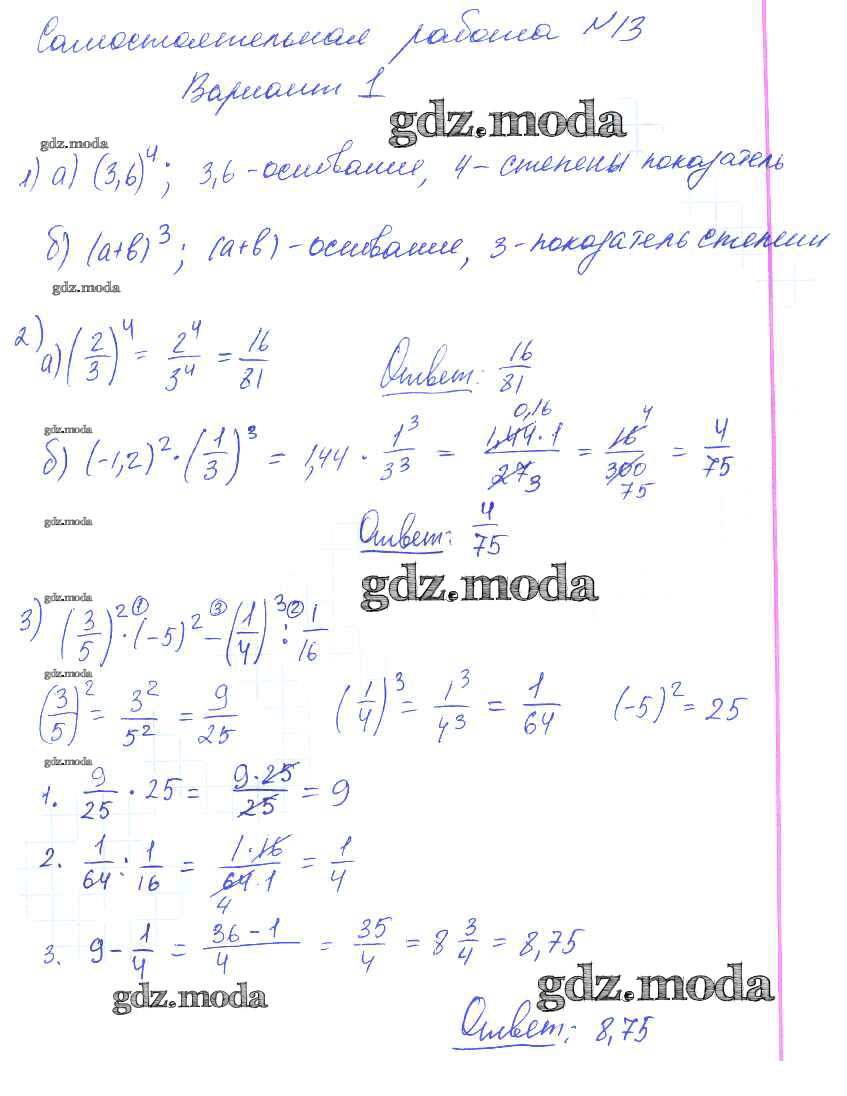 Самостоятельная работа №13
Вариант 1
gdz.moda
gdz.moda
1) а) (3,6)^4; 3,6 - основание, 4 - степены показатель
б) (а+в)^3; (а+в) - основание, 3 - показатель степени
gdz.moda
2) а) (2/3)^4 = 2^4/3^4 = 16/81 Ответ: 16/81
gdz.moda
б) (-1,2)^2 · (1/3)^3 = 1,44 · 1^3/3^3 = 0,16 1,44·1/27 3 = 16 4/300 75 = 4/75
gdz.moda
Ответ: 4/75
gdz.moda
gdz.moda
3) (3/5)^2 ·① (-5)^2 -③ (1/4)^3 :② 1/16
gdz.moda
(3/5)^2 = 3^2/5^2 = 9/25 (1/4)^3 = 1^3/4^3 = 1/64 (-5)^2 = 25
gdz.moda
1. 9/25 · 25 = 9·25/25 = 9
2. 1/64 : 1/16 = 1·16/64·1 4 = 1/4
3. 9 - 1/4 = 36-1/4 = 35/4 = 8 3/4 = 8,75
gdz.moda
gdz.moda
Ответ: 8,75